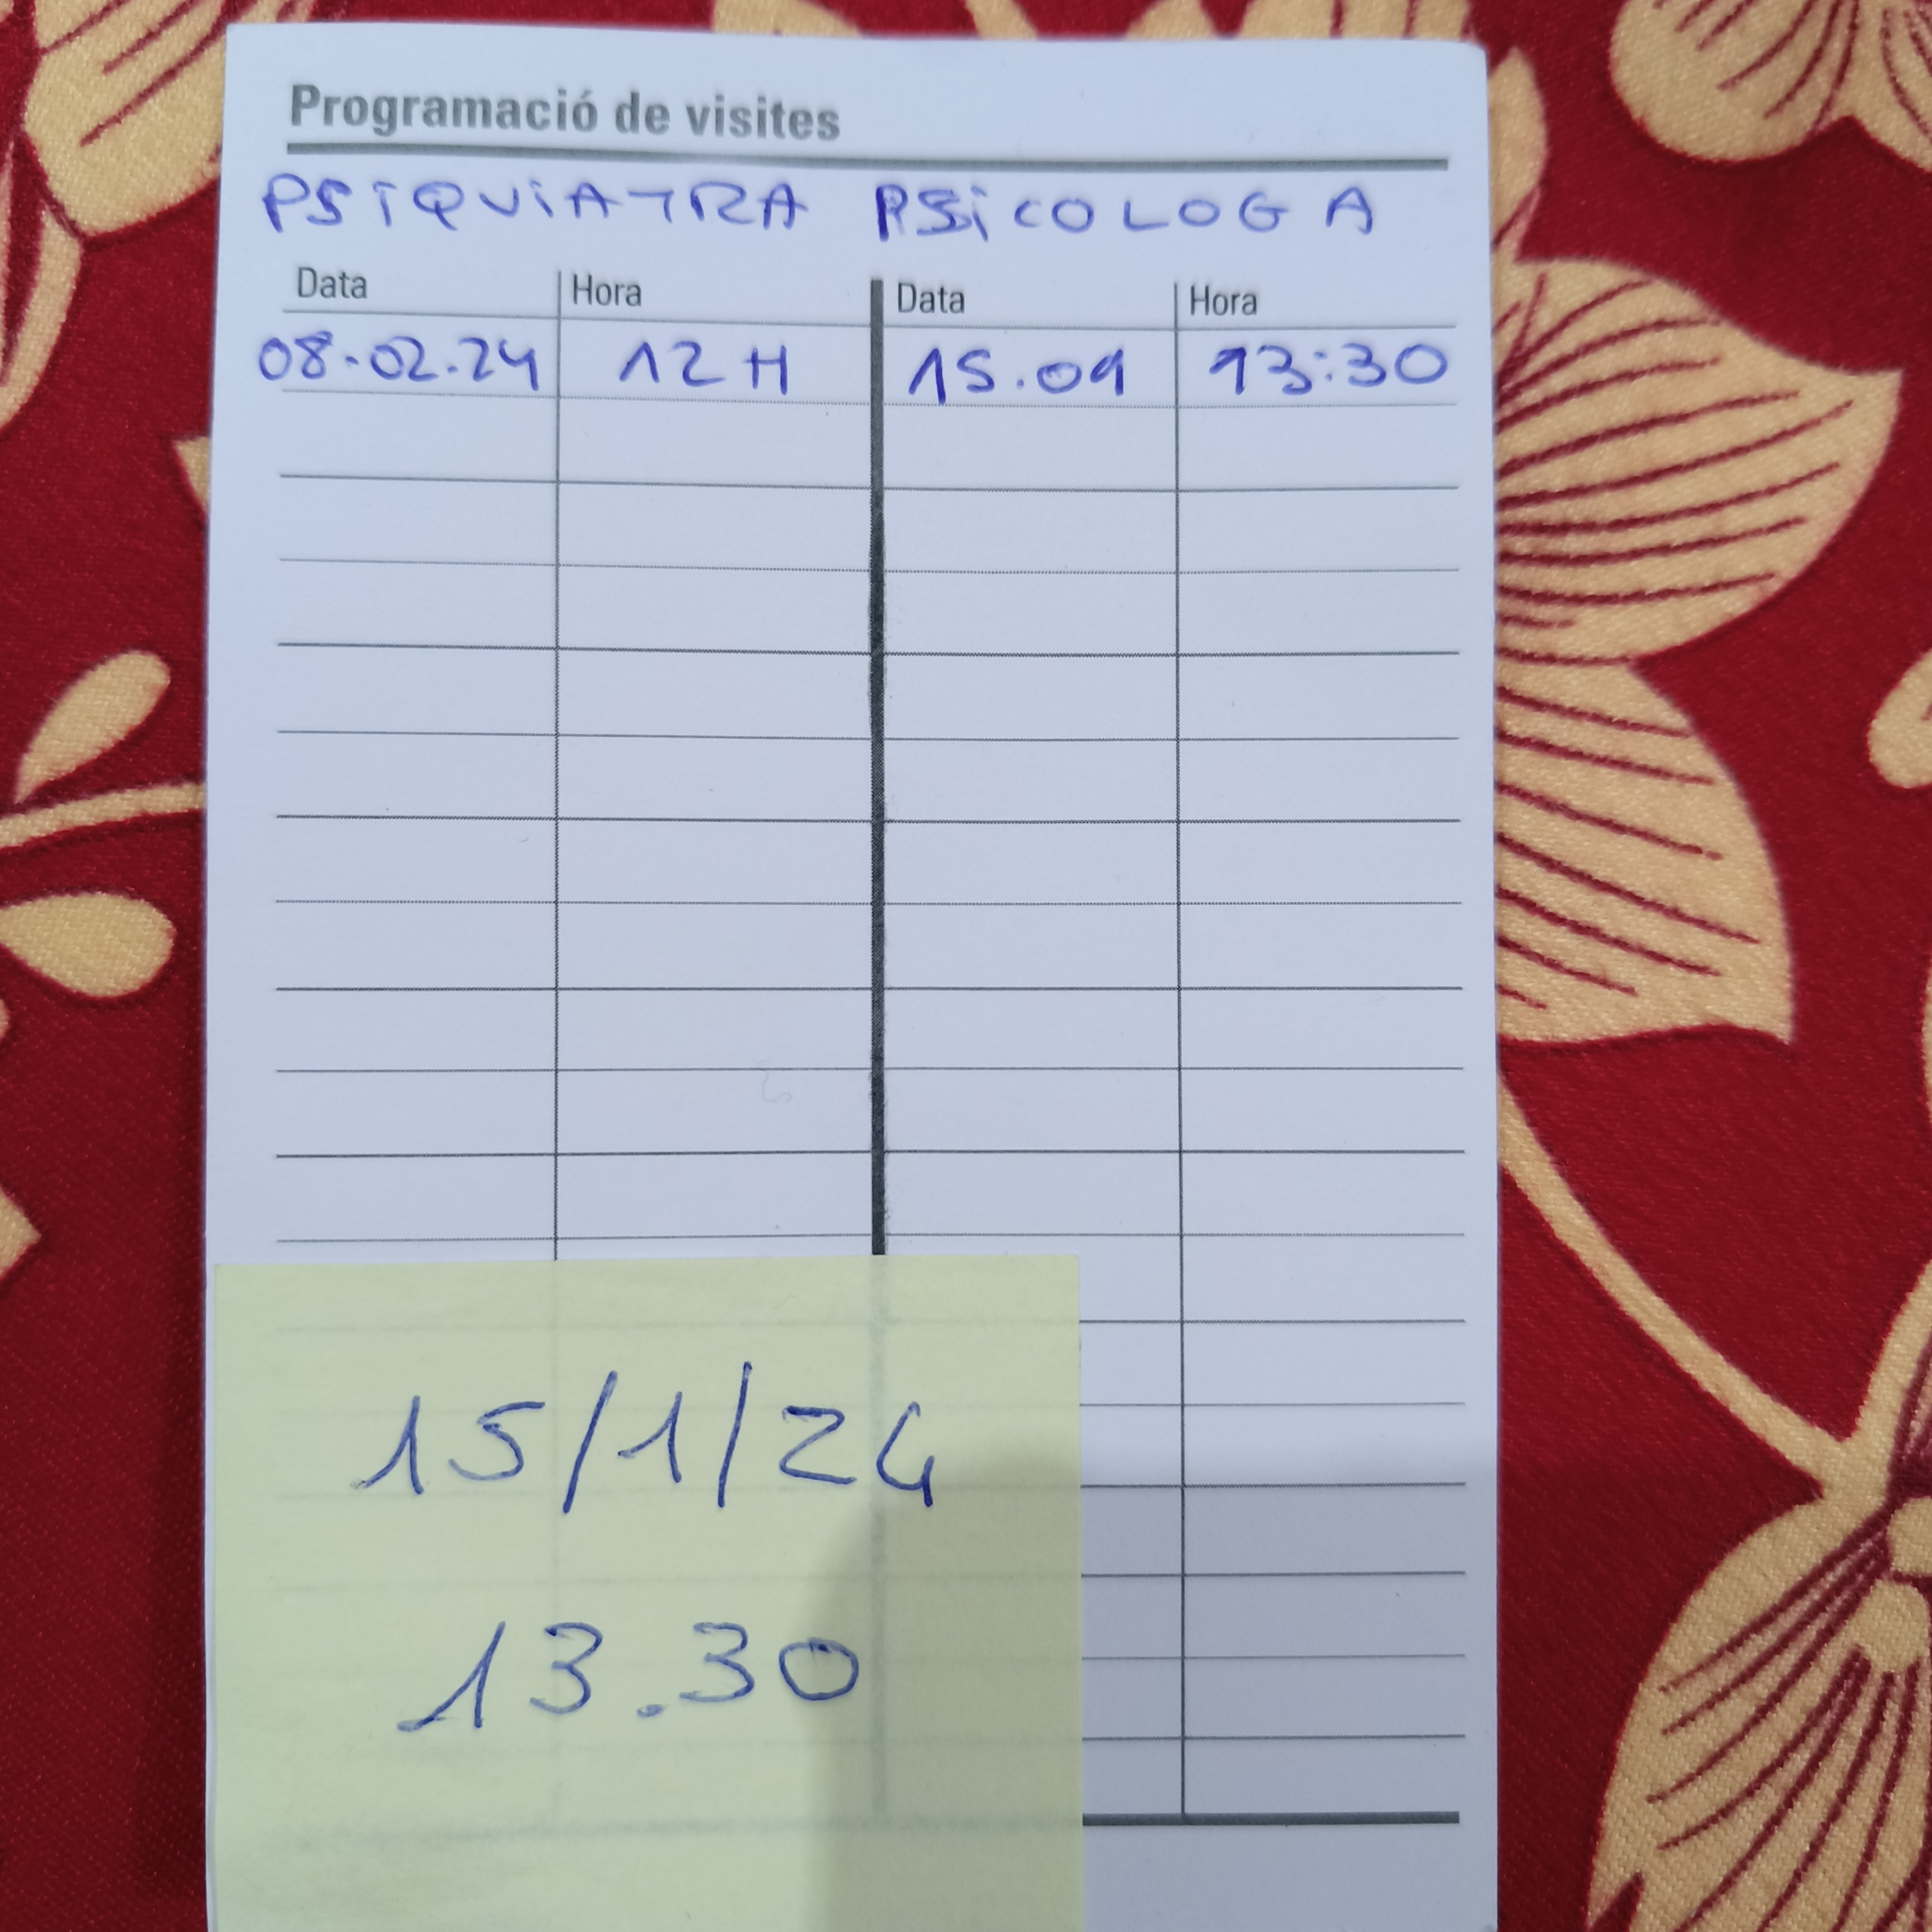 Programació de visites
PSIQUIATRA PSICOLOGA
Data Hora Data Hora
08.02.24 12 H 15.01 13:30
15/1/24
13.30